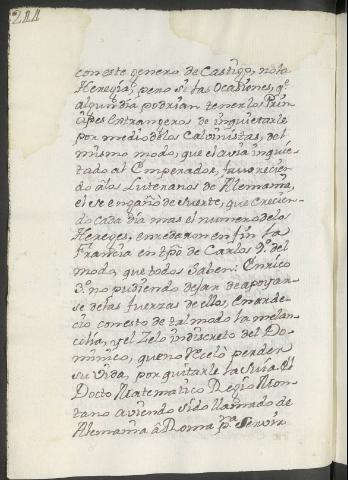 211
con este genero de Castigo, no la
Heregia, pero si las Ocasiones, qe
algun dia podrian tener los Prin
cipes Extrangeros de inquietarle
por medio de los Calvinistas, del
mismo modo, que el avia inquie
tado al Emperador, favorecien
do a los Luteranos de Alemania,
el se engaño de suerte, que crecien
do cada dia mas el numero de los
Hereges, enredaron en fin la
Francia en tpo de Carlos 9.º del
modo, que todos saben: Enrico
3.º no pudiendo dejar de apoyar
se de las fuerzas de ellos, enarde
cio con esto de tal modo la melan
colia, y el Zelo indiscreto del Do
minico, que no recelò perder
su vida, por quitarle la suia. El
Docto Matematico Regio Mon
tano aviendo sido llamado de
Alemania â Roma pa servir